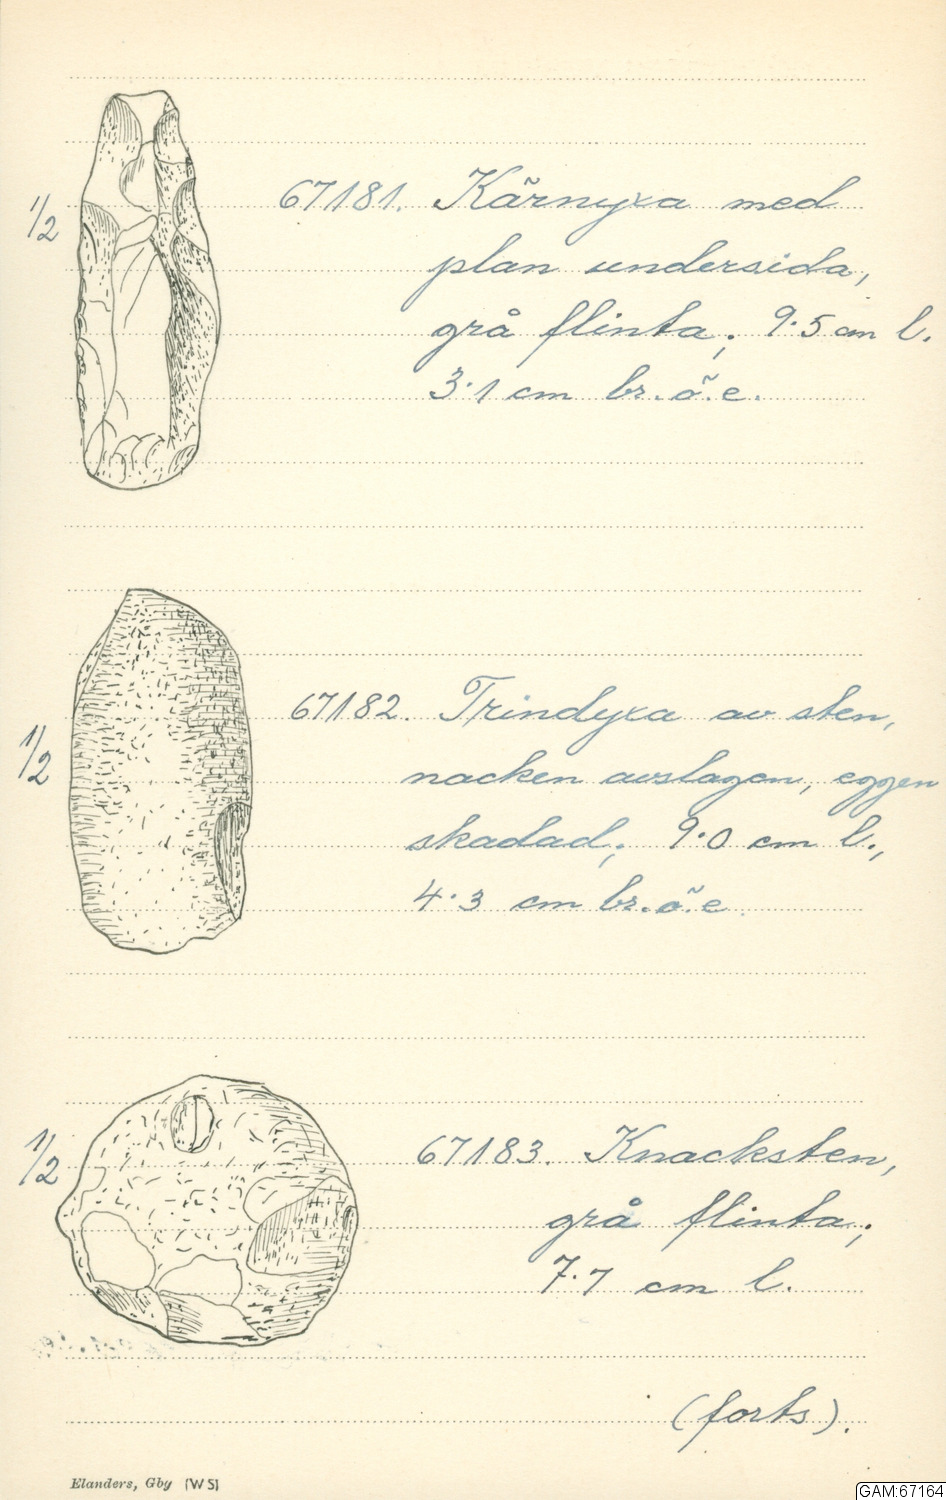 1/2
67181. Kärnyxa med
plan undersida,
grå flinta; 9.5 cm l.
3.1 cm br. ö. e.
1/2
67182. Trindyxa av sten,
nacken avslagen, eggen
skadad; 9.0 cm l.,
4.3 cm br. ö. e
1/2
67183. Knacksten,
grå flinta;
7.7 cm l.
(forts).
Elanders, Gby (WS)
GAM:67164